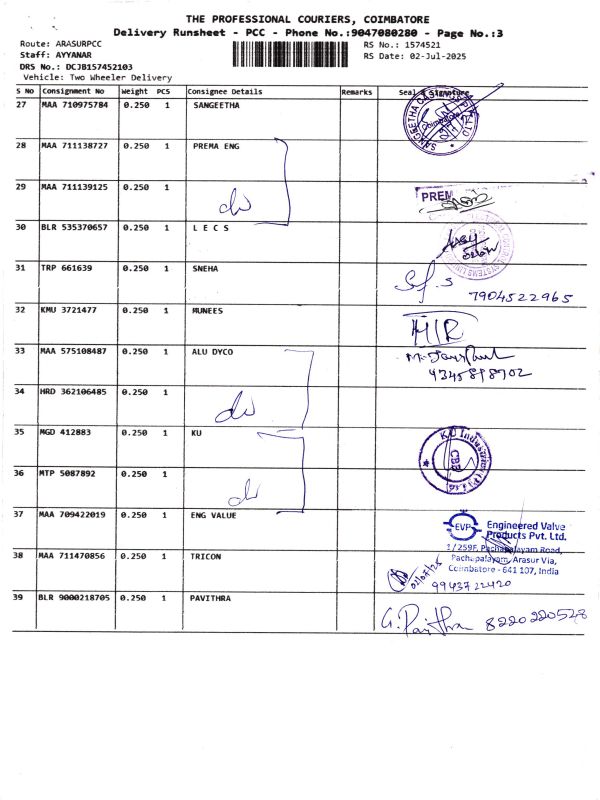 THE PROFESSIONAL COURIERS, COIMBATORE
Delivery Runsheet - PCC - Phone No.:9047080280 - Page No.:3
Route: ARASURPCC
RS No.: 1574521
Staff: AYYANAR
RS Date: 02-Jul-2025
DRS No.: DCJB157452103
Vehicle: Two Wheeler Delivery
S No Consignment No Weight PCS Consignee Details Remarks Seal & Signature
27 MAA 710975784 0.250 1 SANGEETHA
28 MAA 711138727 0.250 1 PREMA ENG
29 MAA 711139125 0.250 1
PREM
30 BLR 535370657 0.250 1 L E C S
31 TRP 661639 0.250 1 SNEHA
7904522965
32 KMU 3721477 0.250 1 MUNEES
33 MAA 575108487 0.250 1 ALU DYCO
34 HRD 362106485 0.250 1
35 MGD 412883 0.250 1 KU
36 MTP 5087892 0.250 1
37 MAA 709422019 0.250 1 ENG VALUE
EVP Engineered Valve
Products Pvt. Ltd.
1/259F, Pachapalayam Road,
38 MAA 711470856 0.250 1 TRICON
Pachapalayam, Arasur Via,
Coimbatore - 641 107, India
9943722420
39 BLR 9000218705 0.250 1 PAVITHRA
G. Pavithra 8220220528